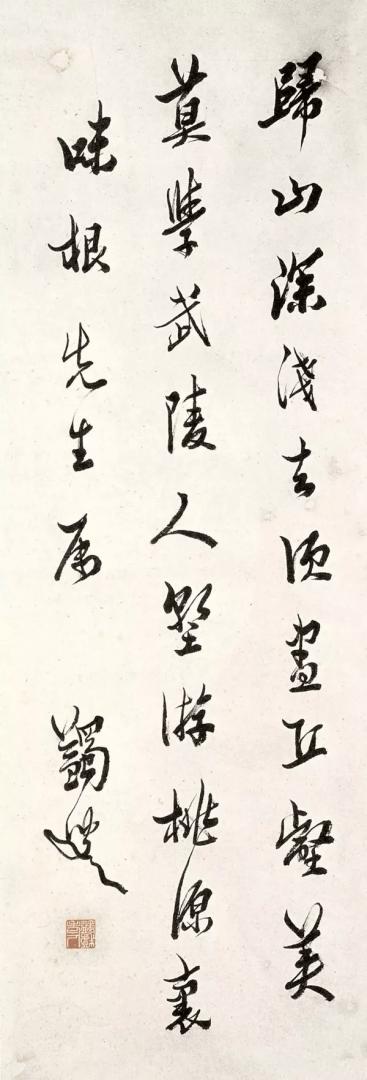 歸山深淺去須盡丘壑美
莫學武陵人蹔游桃源裏
味根先生属
蠲叟